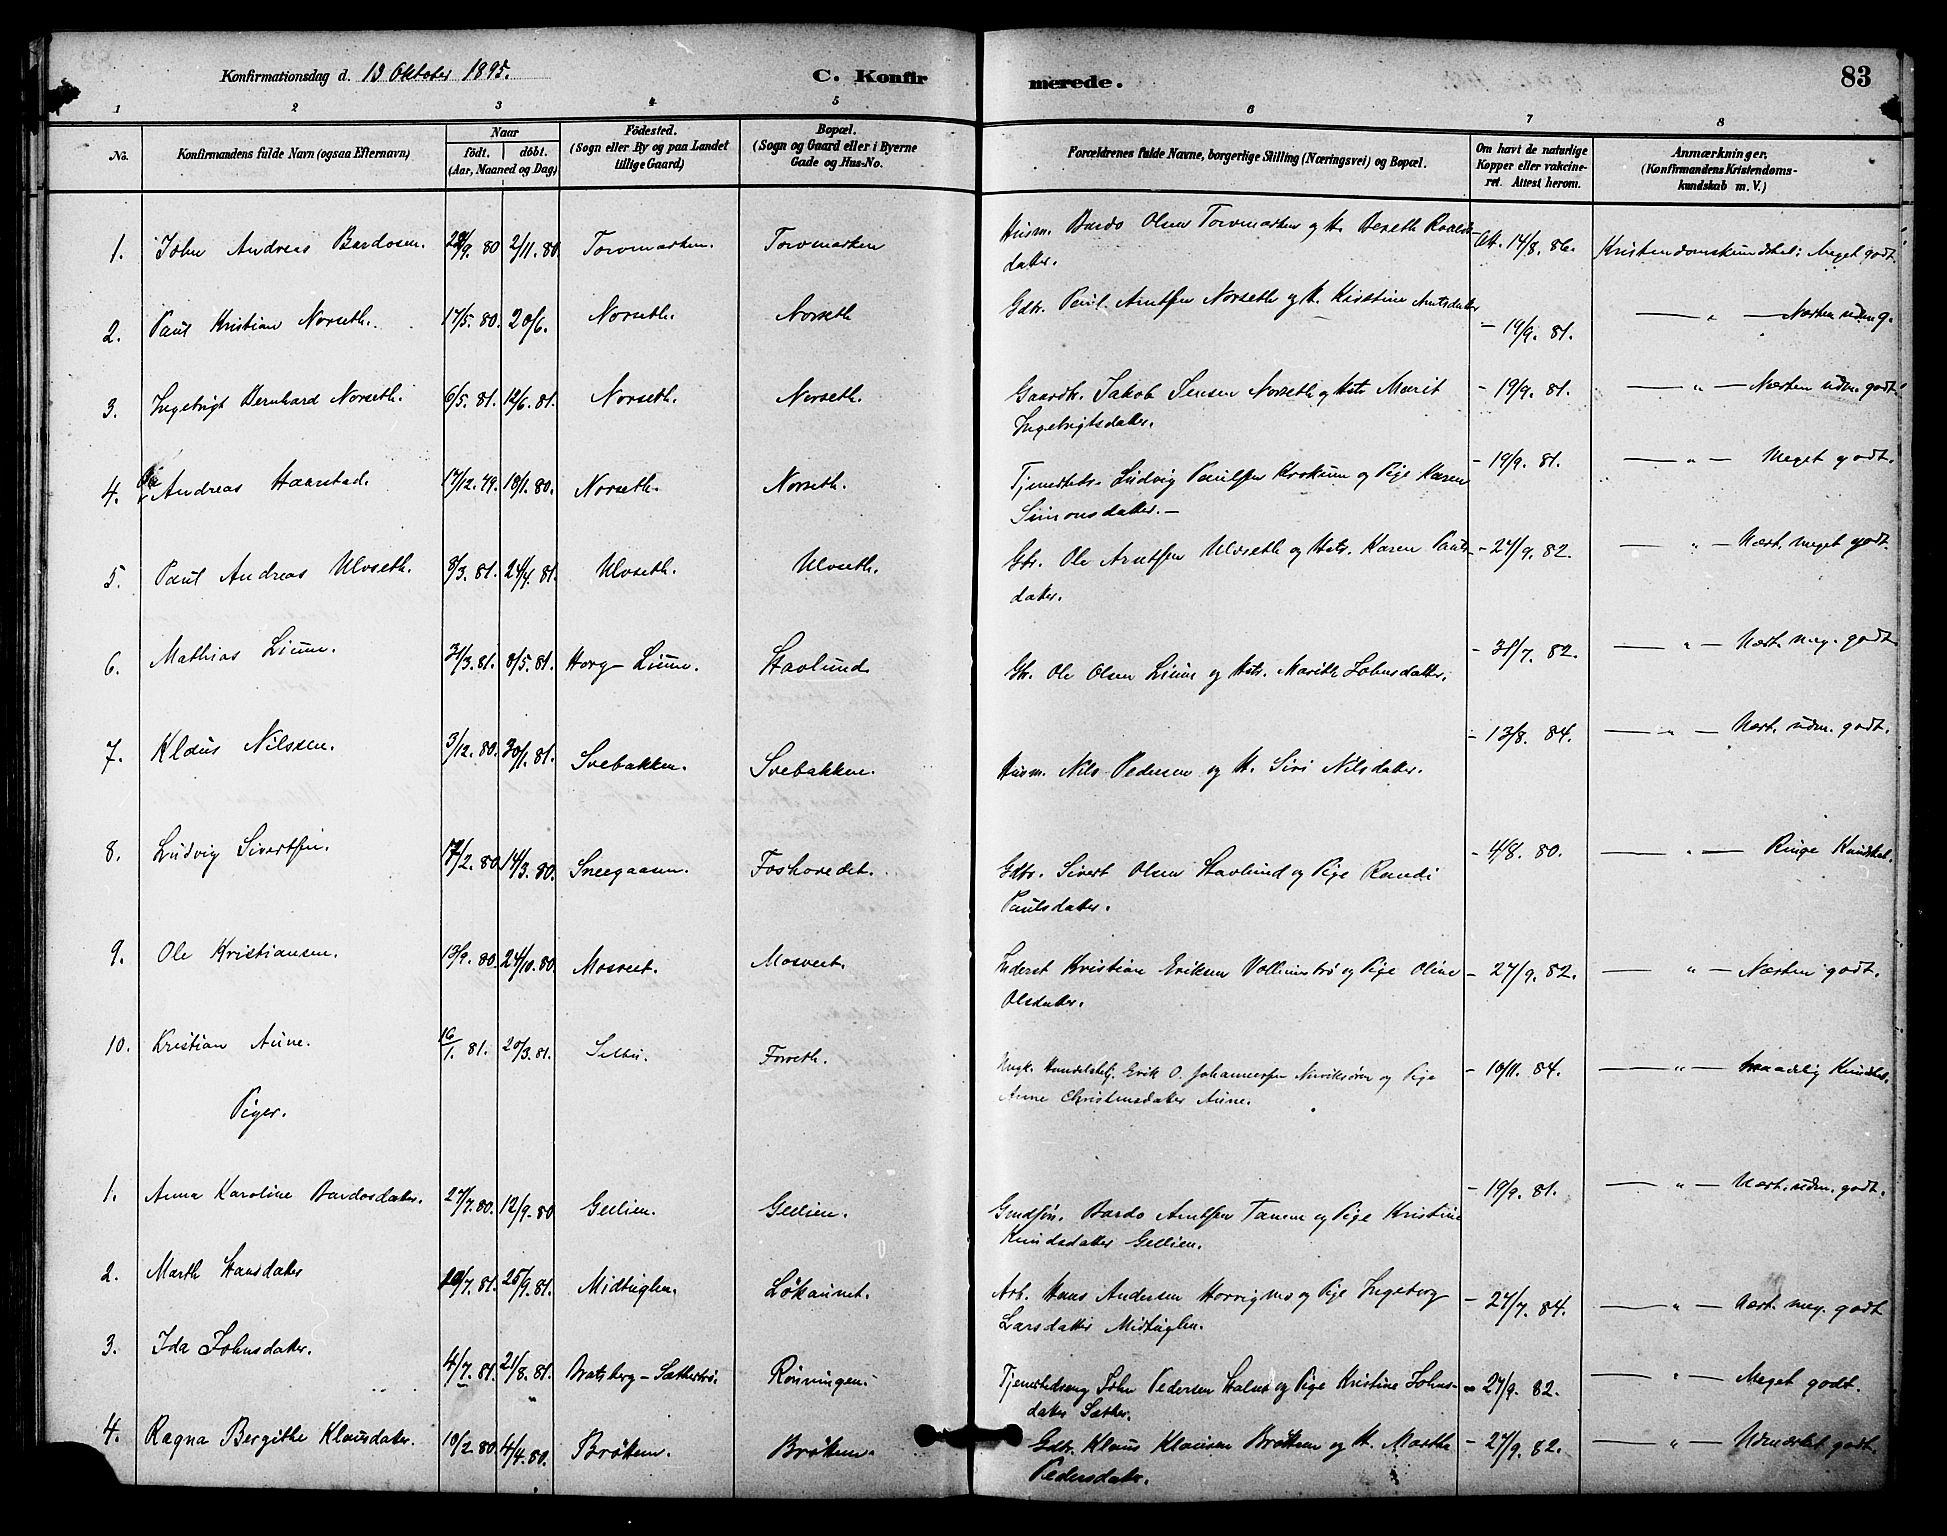 Konfirmationsdag d. 13 Oktober 1895. C. Konfirmerede. 83
1 2 3 4 5 6 7 8
No. Konfirmandens fulde Navn (ogsaa Efternavn) Naar født. døbt. (Aar, Maaned og Dag) Födested. (Sogn eller By og paa Landet tillige Gaard) Bopæl. (Sogn og Gaard eller i Byerne Gade og Hus-No. Forældrenes fulde Navne, borgerlige Stilling (Næringsvei) og Bopæl. Om havt de naturlige Kopper eller vakcineret. Attest herom. Anmærkninger. (Konfirmandens Kristendomskundskab m. V.)
1. John Andreas Bardosen. 2/11. 80. Torvmarken. Torvmarken Husm. Bardo Olsen Torvmarken og H. Bereth
datter. Att. 14/8. 86. Kristendomskundskab: Meget godt.
2. Paul Kristian Norseth. 17/5. 80. 20/6. Norseth. Norseth Gdbr. Paul Arntsen Norseth og H. Kirstine Arntsdatter - 19/9. 81. — " — Næsten udm. g.
3. Ingebrigt Bernhard Norseth. 6/5. 81. 12/6. 81. Norseth. Norseth. Gaardbr. Jakob Jensen Norseth og Hst. Marit
Ingebrigtsdatter. - 19/9. 81. — " — Næsten udm. godt.
4. Andreas Haarstad. 17/12. 79. 19/1. 80. Norseth. Norseth. Ludvig Paulsen Krokum og Pige Karen
Simonsdatter. — - 19/9. 81. — " — Meget godt.
5. Paul Andreas Ulvseth. 8/3. 81. 24/4. 81. Ulvseth. Ulvseth. Gbr. Ole Arntsen Ulvseth og Hst. Karen Pauls-
datter. - 27/9. 82. — " — Næst. meget godt.
6. Mathias Liium. 31/3. 81. 8/5. 81. Horg - Liium. Stavlund Gbr. Ole Olsen Liium og Hst. Marith Johnsdatter. - 31/7. 82. — " — Næst. meg. godt
7. Klaus Nilssen. 3/12. 80. 30/1. 81. Svebakken. Svebakken. Husm. Nils Pedersen og H. Siri Nilsdatter. - 13/8. 84. — " — Næst. udm. godt.
8. Ludvig Sivertsen. 17/2. 80 14/3. 80. Sneegaasen. Foshovedet. Gdbr. Sivert Olsen Stavlund og Pige Randi
Paulsdatter. - 4/8. 80. — " — Ringe Kundskab.
9. Ole Kristiansen. 13/9. 80. 24/10. 80. Mosveet. Mosveet. Inderst Kristian Eriksen og Pige Oline
Olsdatter. - 27/9. 82. — " — Næsten godt.
10. Kristian Aune. 16/1. 81. 20/3. 81. Selbu. Forseth. Ungk. Handelsbetj. Erik O. Johannessen og Pige
Anne Christensdatter Aune. - 10/11. 84. — " — Maadelig Kundskab.
Piger.
1. Anna Karoline Bardosdatter. 27/7. 80. 12/9. 80 Gellien. Gellien. Gmdsøn. Bardo Arntsen Tanem og Pige Kristine
Knudsdatter Gellien. - 19/9. 81. — " — Næst. udm. godt.
2. Marth Hansdatter /7. 81. 25/9. 81. Midtuglen. Løkaunet. Arb. Hans Andersen Horrigmo og Pige Ingeborg
Larsdatter Midtuglen. - 27/7. 84. — " — Næst. meg. godt
3. Ida Johnsdatter. 4/7. 81. 21/8. 81. Bratsberg - Sætterbrö. Rönningen. John Pedersen og Pige Kristine Johns-
datter Sæther. - 27/9. 82. — " — Meget godt.
4. Ragna Bergithe Klausdatter. 10/2. 80 4/4. 80. Bröttem. Bröttem. Gdbr. Klaus Klausen Bröttem og H. Marthe
Pedersdatter. - 27/9. 82. — " — Udmærket godt.